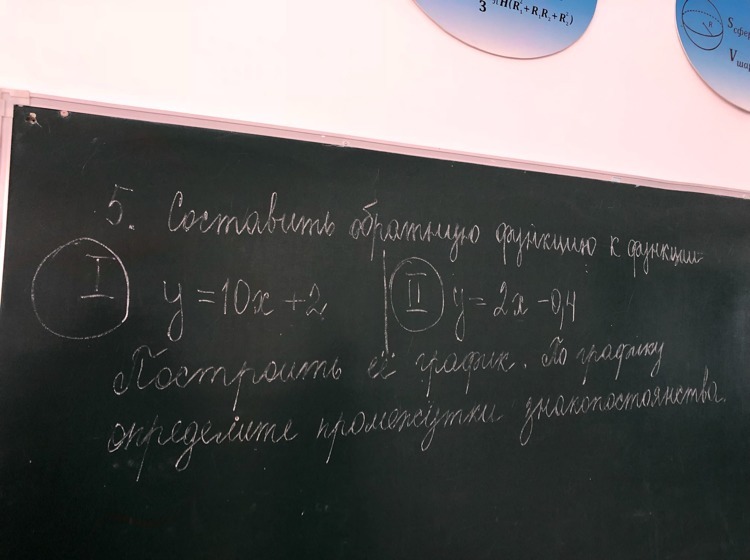 3 πH(R₁²+R₁R₂+R₂²)
R
Sсфер
Vшар
5. Составить обратную функцию к функции
I y = 10x + 2 II y = 2x - 0,4
Построить её график. По графику
определите промежутки знакопостоянства.